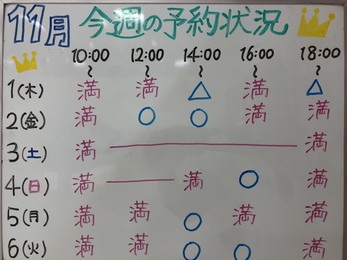 11月 今週の予約状況
10:00 12:00 14:00 16:00 18:00
~ ~ ~ ~ ~
1(木) 満 満 △ 満 △
2(金) 満 ○ ○ 満 満
3(土) 満 ——— 満
4(日) 満 —— 満 ○ 満
5(月) 満 満 ○ 満 満
6(火) 満 満 ○ ○ 満